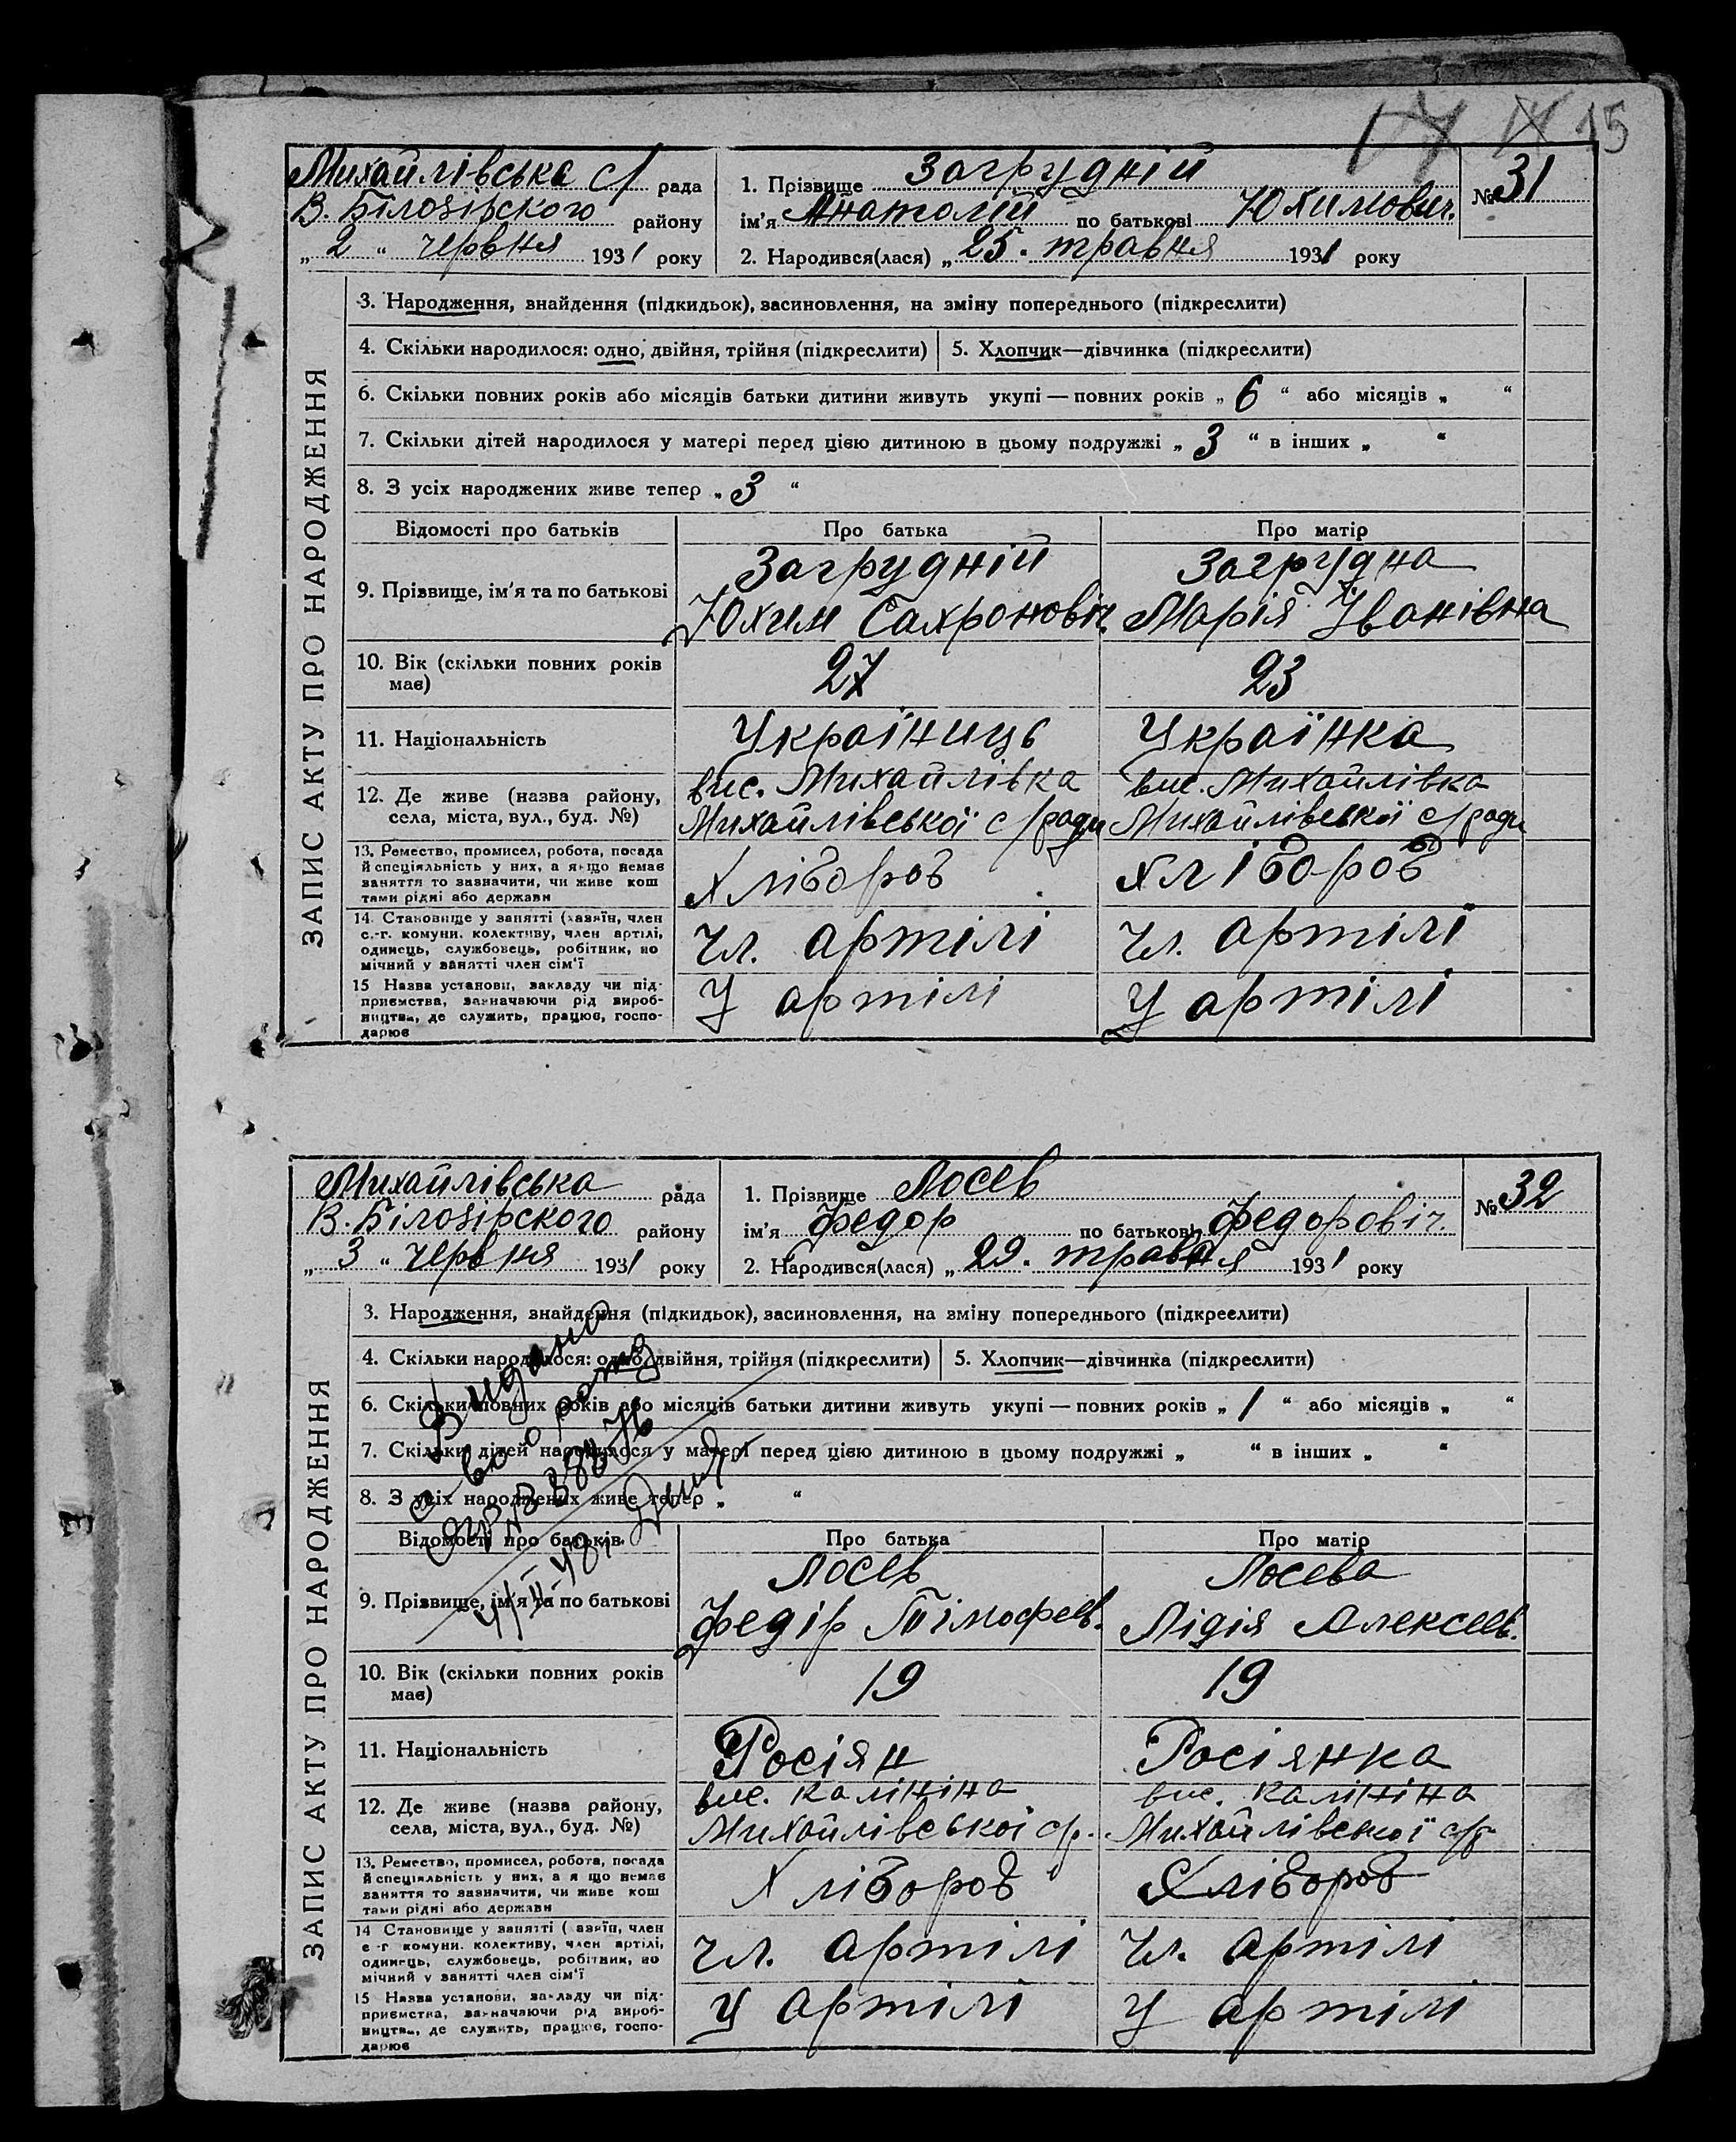 15
Михайлівська с/ рада
В. Білозірского району
„ 2 “ червня 1931 року
1. Прізвище Загрудній
ім’я Анатолій по батькові Юхимович.
2. Народився(лася) „ 25. травня 1931 року
№ 31
ЗАПИС АКТУ ПРО НАРОДЖЕННЯ
3. Народження, знайдення (підкидьок), засиновлення, на зміну попереднього (підкреслити)
4. Скільки народилося: одно, двійня, трійня (підкреслити) 5. Хлопчик—дівчинка (підкреслити)
6. Скільки повних років або місяців батьки дитини живуть укупі — повних років „ 6 “ або місяців „ “
7. Скільки дітей народилося у матері перед цією дитиною в цьому подружжі „ 3 “ в інших „ “
8. З усіх народжених живе тепер „ 3 “
Відомості про батьків Про батька Про матір
9. Прізвище, ім’я та по батькові
Загрудній
Юхим Сахроновіч.
Загрудна
Марія Іванівна
10. Вік (скільки повних років має)
27
23
11. Національність
Україниць
Українка
12. Де живе (назва району,
села, міста, вул., буд. №)
вис. Михайлівка
Михайлівської с/ради
вис. Михайлівка
Михайлівської с/ради
13. Ремество, промисел, робота, посада
й спеціяльність у них, а якщо немає
заняття то зазначити, чи живе кош
тами рідні або держави
Хлібороб
Хлібороб
14. Становище у занятті (хазяїн, член
с.-г. комуни. колективу, член артілі,
одинець, службовець, робітник, по
мічний у занятті член сім’ї
Чл. артілі
Чл. артілі
15 Назва установи, закладу чи під-
приємства, зазначаючи рід вироб-
ництва, де служить, працює, госпо-
дарює
У артілі
У артілі
Михайлівська рада
В. Білозірского району
„ 3 “ червня 1931 року
1. Прізвище Лосев
ім’я Федор по батькові Федоровіч.
2. Народився(лася) „ 29. травня 1931 року
№ 32
ЗАПИС АКТУ ПРО НАРОДЖЕННЯ
3. Народження, знайдення (підкидьок), засиновлення, на зміну попереднього (підкреслити)
4. Скільки народилося: одно, двійня, трійня (підкреслити) 5. Хлопчик—дівчинка (підкреслити)
6. Скільки повних років або місяців батьки дитини живуть укупі — повних років „ 1 “ або місяців „ “
7. Скільки дітей народилося у матері перед цією дитиною в цьому подружжі „ “ в інших „ “
8. З усіх народжених живе тепер „ “
Видано
Відомості про батьків Про батька Про матір
9. Прізвище, ім’я та по батькові
Лосев
Федір Тімофеев.
Лосева
Лідія Алексеев.
10. Вік (скільки повних років має)
19
19
11. Національність
Росіян
Росіянка
12. Де живе (назва району,
села, міста, вул., буд. №)
вис. Калініна
Михайлівської с/р.
вис. Калініна
Михайлівської с/р
13. Ремество, промисел, робота, посада
й спеціяльність у них, а я що немає
заняття то зазначити, чи живе кош
тами рідні або держави
Хлібороб
Хлібороб
14 Становище у занятті ( азяїн, член
с -г комуни. колективу, член артілі,
одинець, службовець, робітник, по
мічний у занятті член сім’ї
Чл. артілі
Чл. артілі
15 Назва установи, закладу чи під-
приємства, зазначаючи рід вироб-
ництва, де служить, працює, госпо-
дарює
У артілі
У артілі